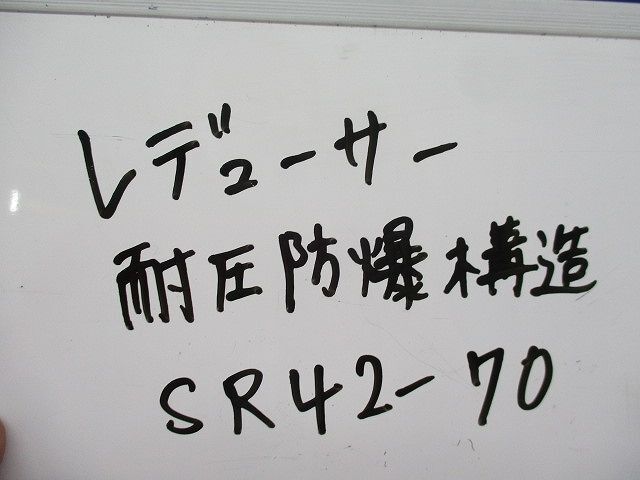 レデューサー
耐圧防爆構造
SR42-70